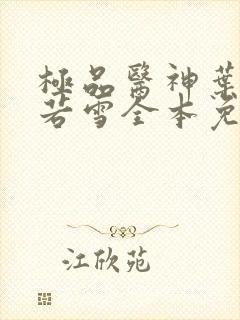 極品醫神葉
若雪全本免
江欣苑